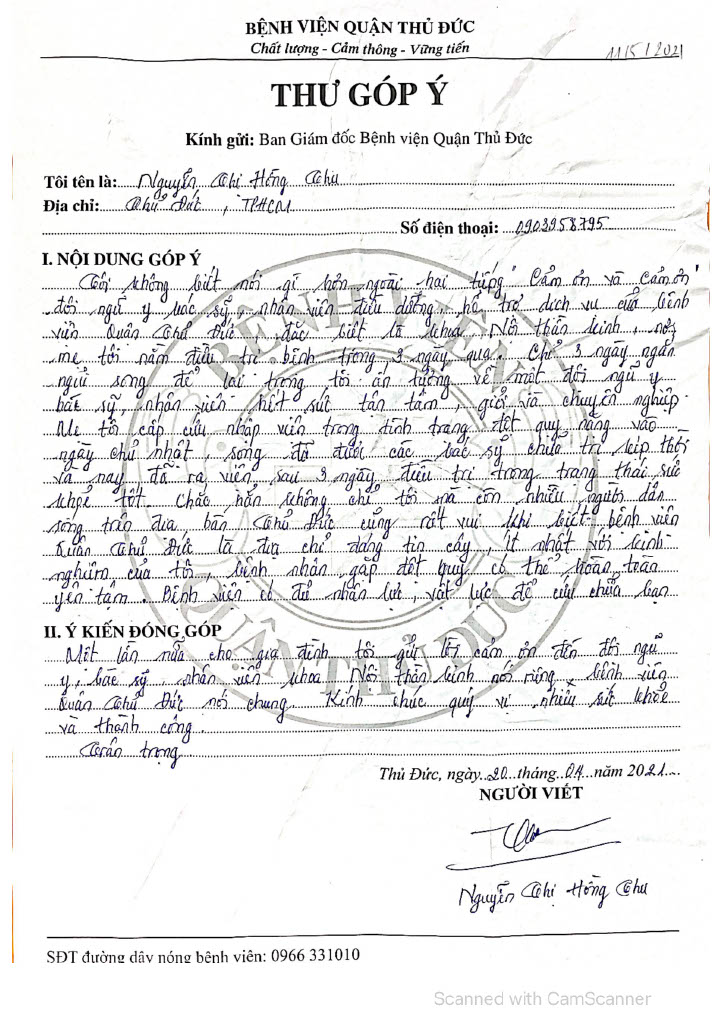 BỆNH VIỆN QUẬN THỦ ĐỨC
Chất lượng - Cảm thông - Vững tiến
11/5/2021
THƯ GÓP Ý
Kính gửi: Ban Giám đốc Bệnh viện Quận Thủ Đức
Tôi tên là: Nguyễn Thị Hồng Thu
Địa chỉ: Thủ Đức, TPHCM
Số điện thoại: 0903958795
I. NỘI DUNG GÓP Ý
Tôi không biết nói gì hơn ngoài hai tiếng "Cảm ơn và cảm ơn"
đội ngũ y bác sỹ, nhân viên điều dưỡng, hỗ trợ dịch vụ của bệnh
viện Quận Thủ Đức, đặc biệt là khoa Nội thần kinh, nơi
mẹ tôi nằm điều trị bệnh trong 3 ngày qua. Chỉ 3 ngày ngắn
ngủi song để lại trong tôi ấn tượng về một đội ngũ y
bác sỹ, nhân viên hết sức tận tâm, giỏi và chuyên nghiệp.
Mẹ tôi cấp cứu nhập viện trong tình trạng đột quỵ nặng vào
ngày chủ nhật, song đã được các bác sỹ chữa trị kịp thời
và nay đã ra viện sau 3 ngày điều trị trong trạng thái sức
khỏe tốt. Chắc hẳn không chỉ tôi mà còn nhiều người dân
sống trên địa bàn Thủ Đức cũng rất vui khi biết bệnh viện
Quận Thủ Đức là địa chỉ đáng tin cậy, ít nhất với kinh
nghiệm của tôi, bệnh nhân gặp đột quỵ có thể hoàn toàn
yên tâm. Bệnh viện có đủ nhân lực, vật lực để cứu chữa bạn
II. Ý KIẾN ĐÓNG GÓP
Một lần nữa cho gia đình tôi gửi lời cảm ơn đến đội ngũ
y, bác sỹ, nhân viên khoa Nội thần kinh nói riêng, bệnh viện
Quận Thủ Đức nói chung. Kính chúc quý vị nhiều sức khỏe
và thành công.
Trân trọng
Thủ Đức, ngày 20 tháng 04 năm 2021
NGƯỜI VIẾT
Nguyễn Thị Hồng Thu
SĐT đường dây nóng bệnh viện: 0966 331010
BỆNH VIỆN
QUẬN THỦ ĐỨC
Scanned with CamScanner